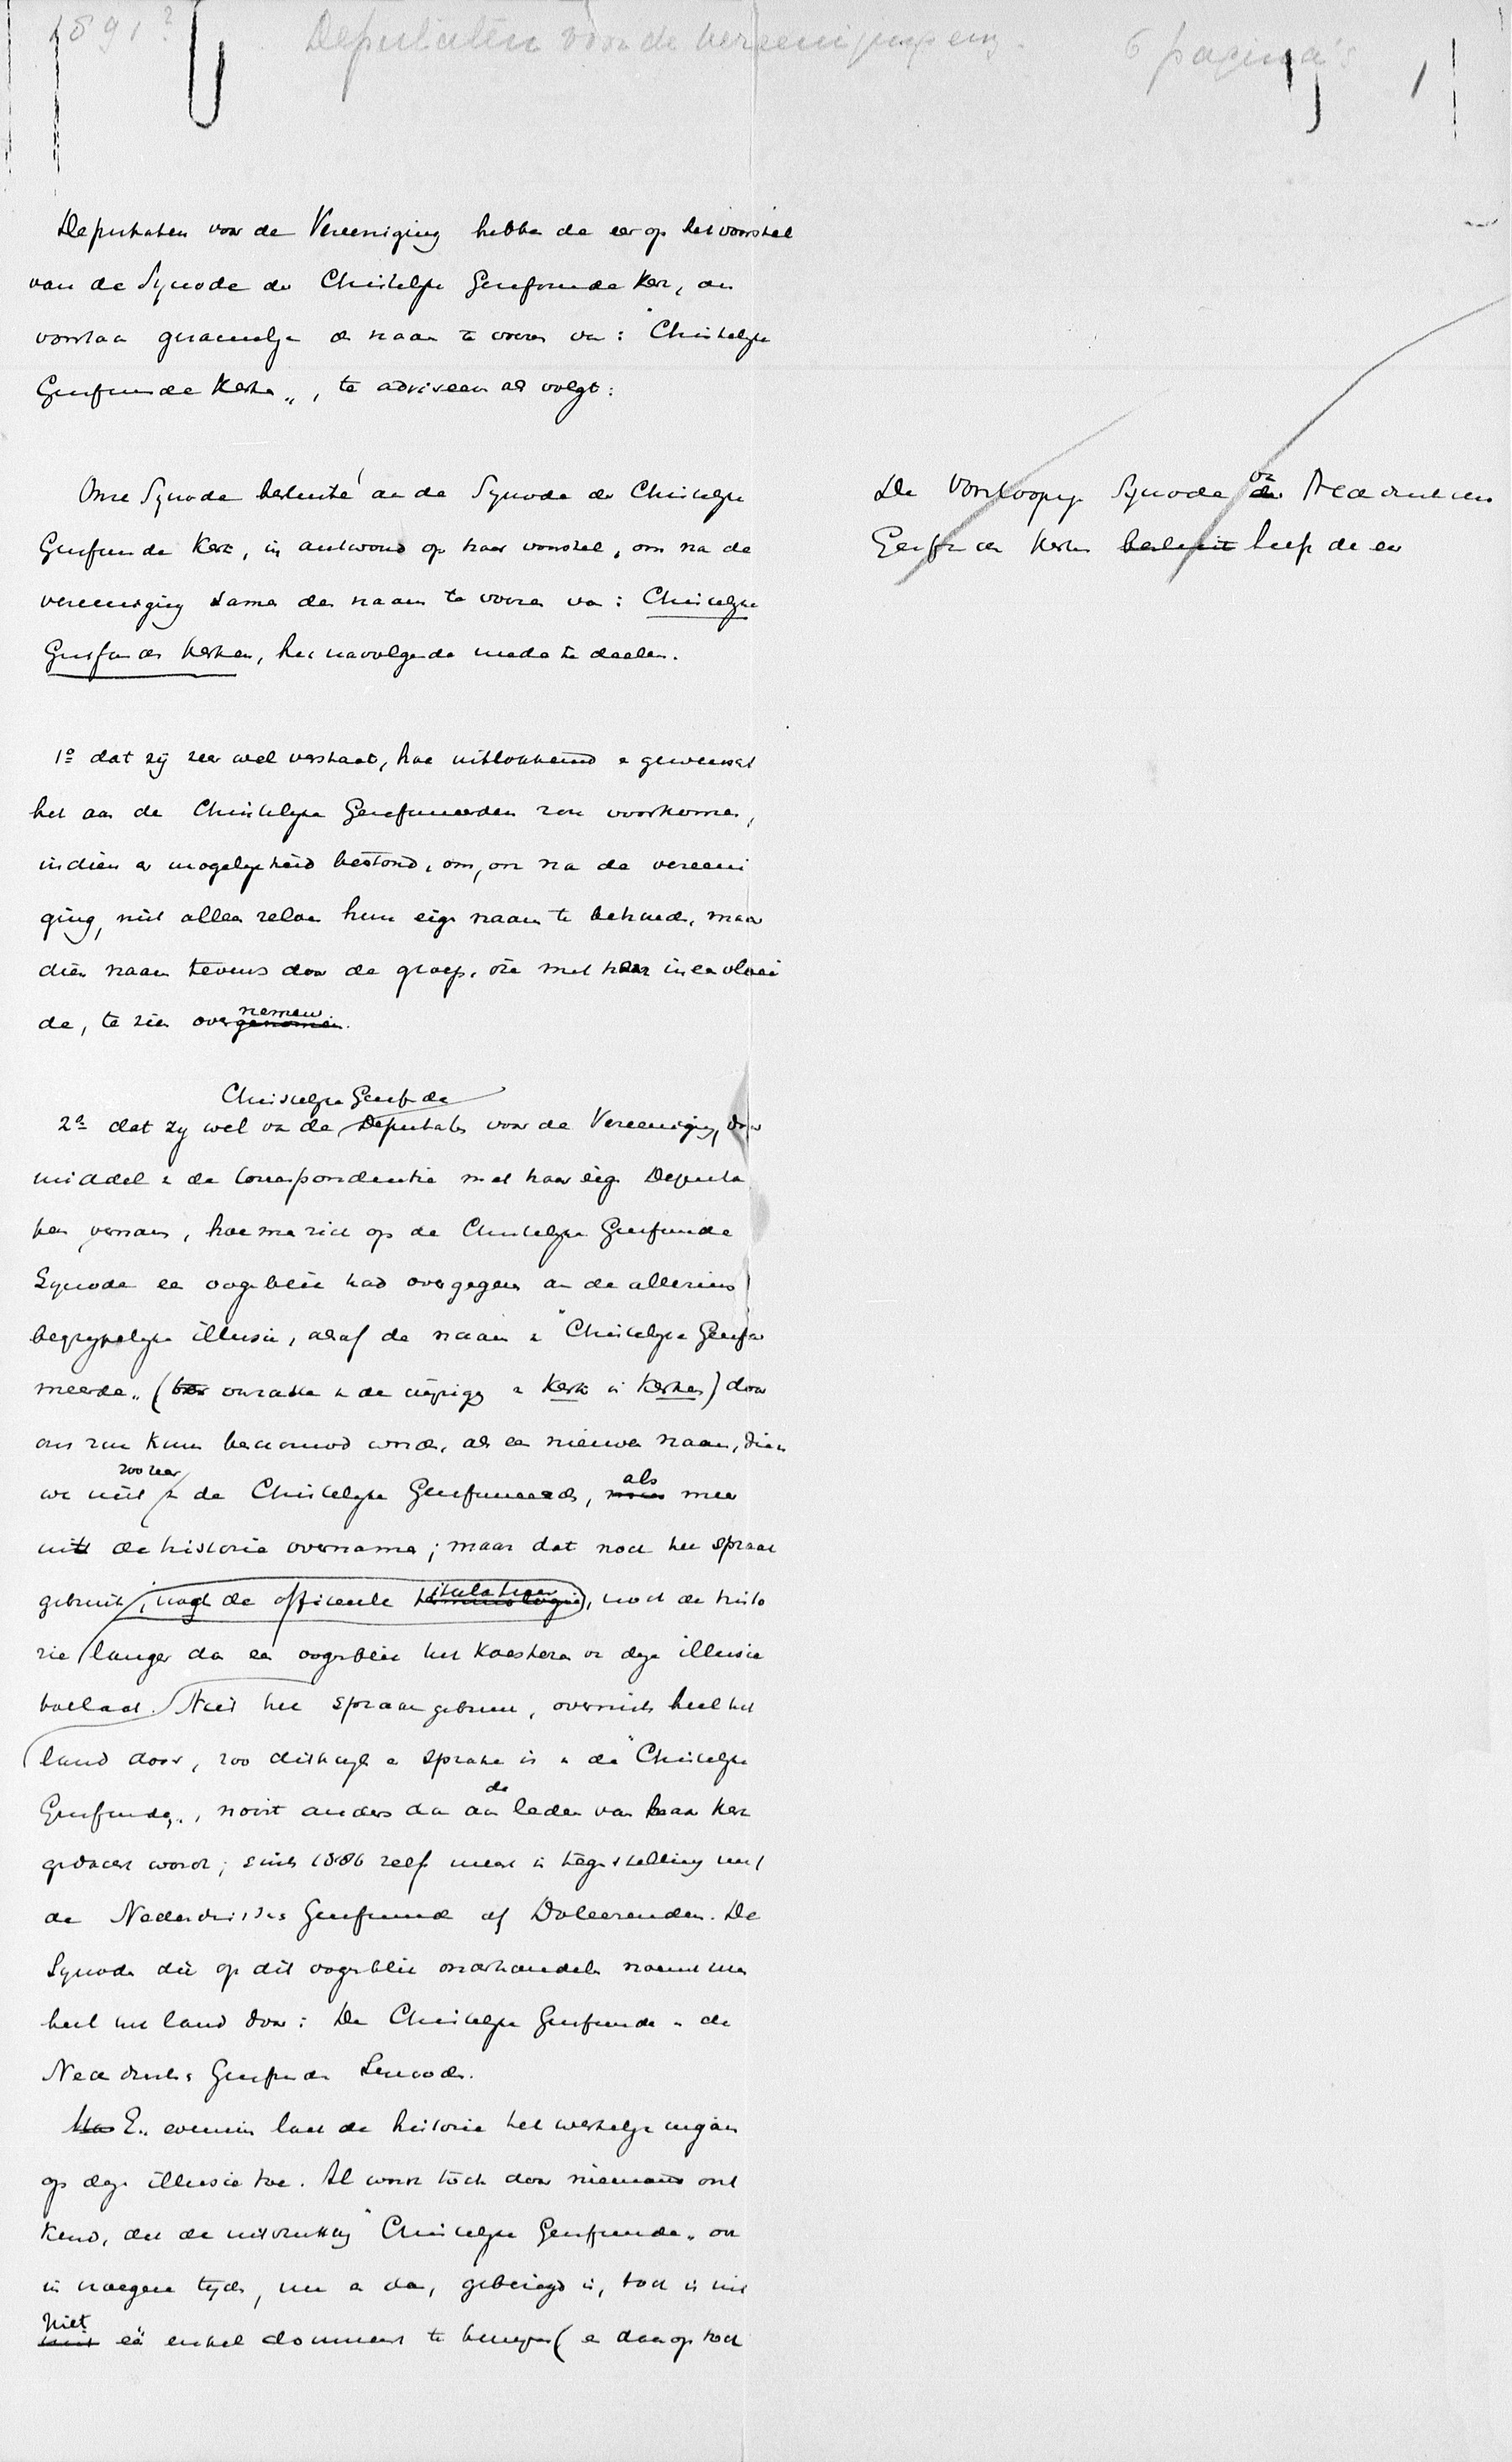 1891?
Deputaten voor de vereeniging enz.
6 pagina's
Deputaten voor de Vereeniging hebben de eer op het voorstel
van de Synode der Christelijke Gereformeerde Kerk, om
voortaan gezamenlijk den naam te voeren van: "Christelijke
Gereformeerde Kerken„, te adviseeren als volgt:
Onze Synode besluite aan de Synode der Christelijke
Gereformeerde Kerk, in antwoord op haar voorstel, om na de
vereeniging samen den naam te voeren van: Christelijke
Gereformeerde Kerken, het navolgende mede te deelen.
De Voorloopige Synode van der Nederduitsche
Gereformeerde Kerken besluit heeft de eer
1º dat zij zeer wel verstaat, hoe uitlokkend en gewenscht
het aan de Christelijke Gereformeerden zou voorkomen,
indien er mogelijkheid bestond, om, ook na de vereeni
ging, niet alleen zelven hun eigen naam te behouden, maar
dien naam tevens door de groep, die met haar ineenvloei
de, te zien overgenomen nemen.
Christelijke Gereformeerde
2º dat zij wel van de Deputaten voor de Vereeniging, door
middel van de Correspondentie met haar eigen Deputa
ten vernam, hoe men zich op de Christelijke Gereformeerde
Synode een oogenblik had overgegeven aan de alleszins
begrijpelijke illusie, alsof de naam van "Christelijke Gerefor
meerde„ (ter oorzake van de wijziging van Kerk in Kerken) door
ons zou kunnen beschouwd worden, als een nieuwe naam, dien
zoozeer als
we niet van de Christelijke Gereformeerden, maar meer
uit de historie overnamen; maar dat noch het spraak
gebruik, noch de officieele titulatuur, noch de histo
rie langer dan een oogenblik het koesteren van deze illusie
toelaat. Niet het spraakgebruik, overmits heel het
land door, zoo dikwijls er sprake is van de "Christelijke
de
Gereformeerden„, nooit anders dan aan leden van haar Kerk
gedacht wordt; sinds 1886 zelfs meest in tegenstelling met
de Nederduitsche Gereformeerden of Doleerenden. De
Synoden die op dit oogenblik onderhandelen noemt men
heel het land door: De Christelijke Gereformeerde en de
Nederduitsche Gereformeerde Synode.
En evenmin laat de historie het werkelijk ingaan
op deze illusie toe. Al wordt toch door niemand ont
kend, dat de uitdrukking "Christelijke Gereformeerde„ ook
in vroegere tijden, nu en dan, gebezigd is, toch is niet
niet één enkel document te bewijzen (en daarop toch